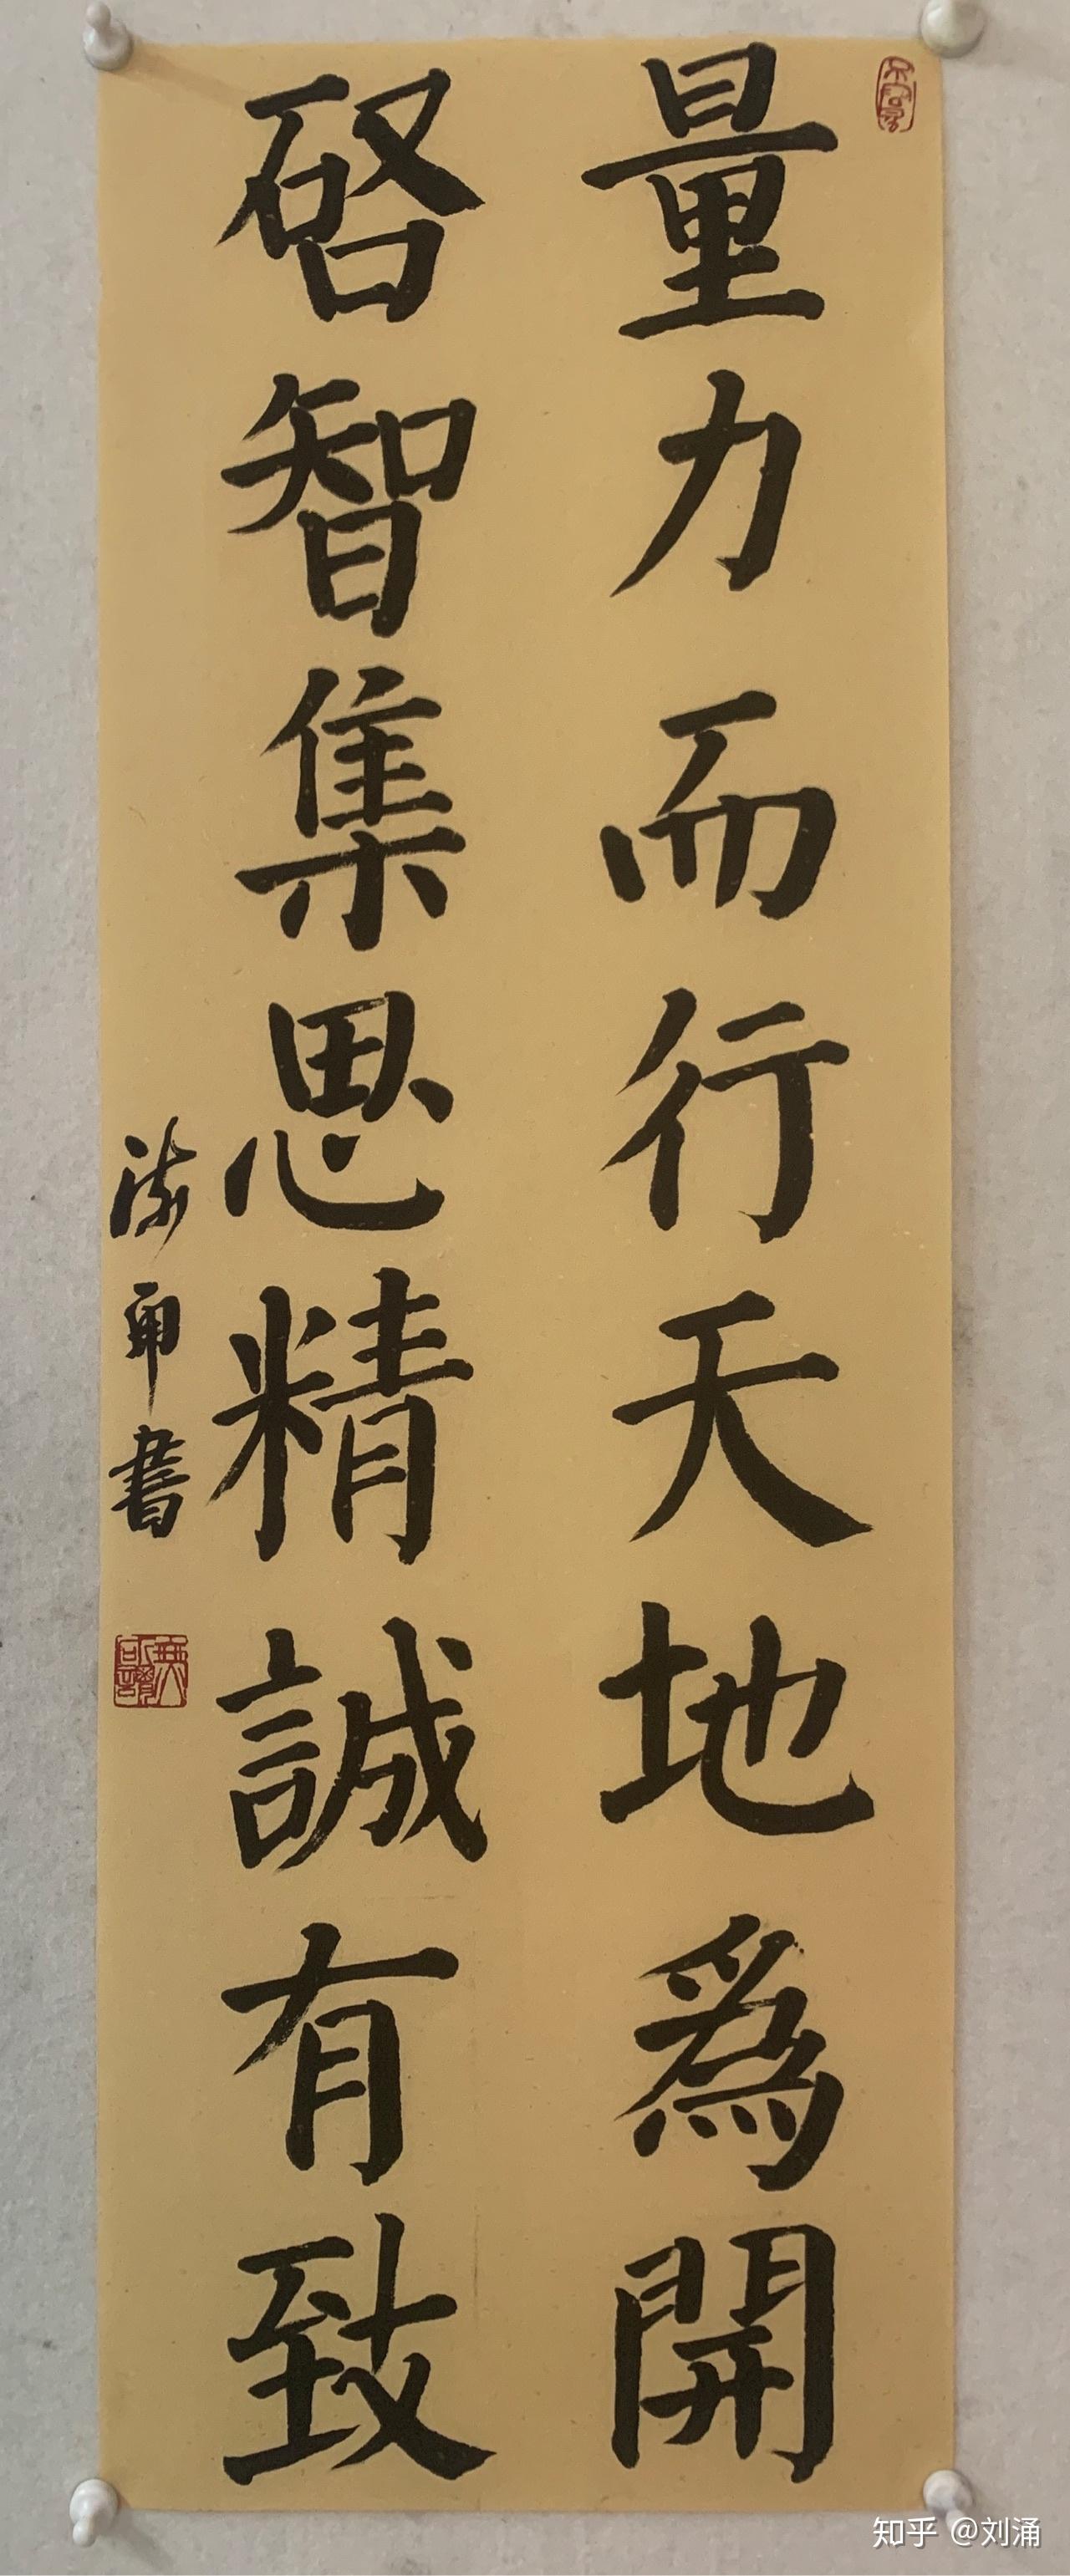 量力而行天地為開
啓智集思精誠有致
書
知乎 @刘涌